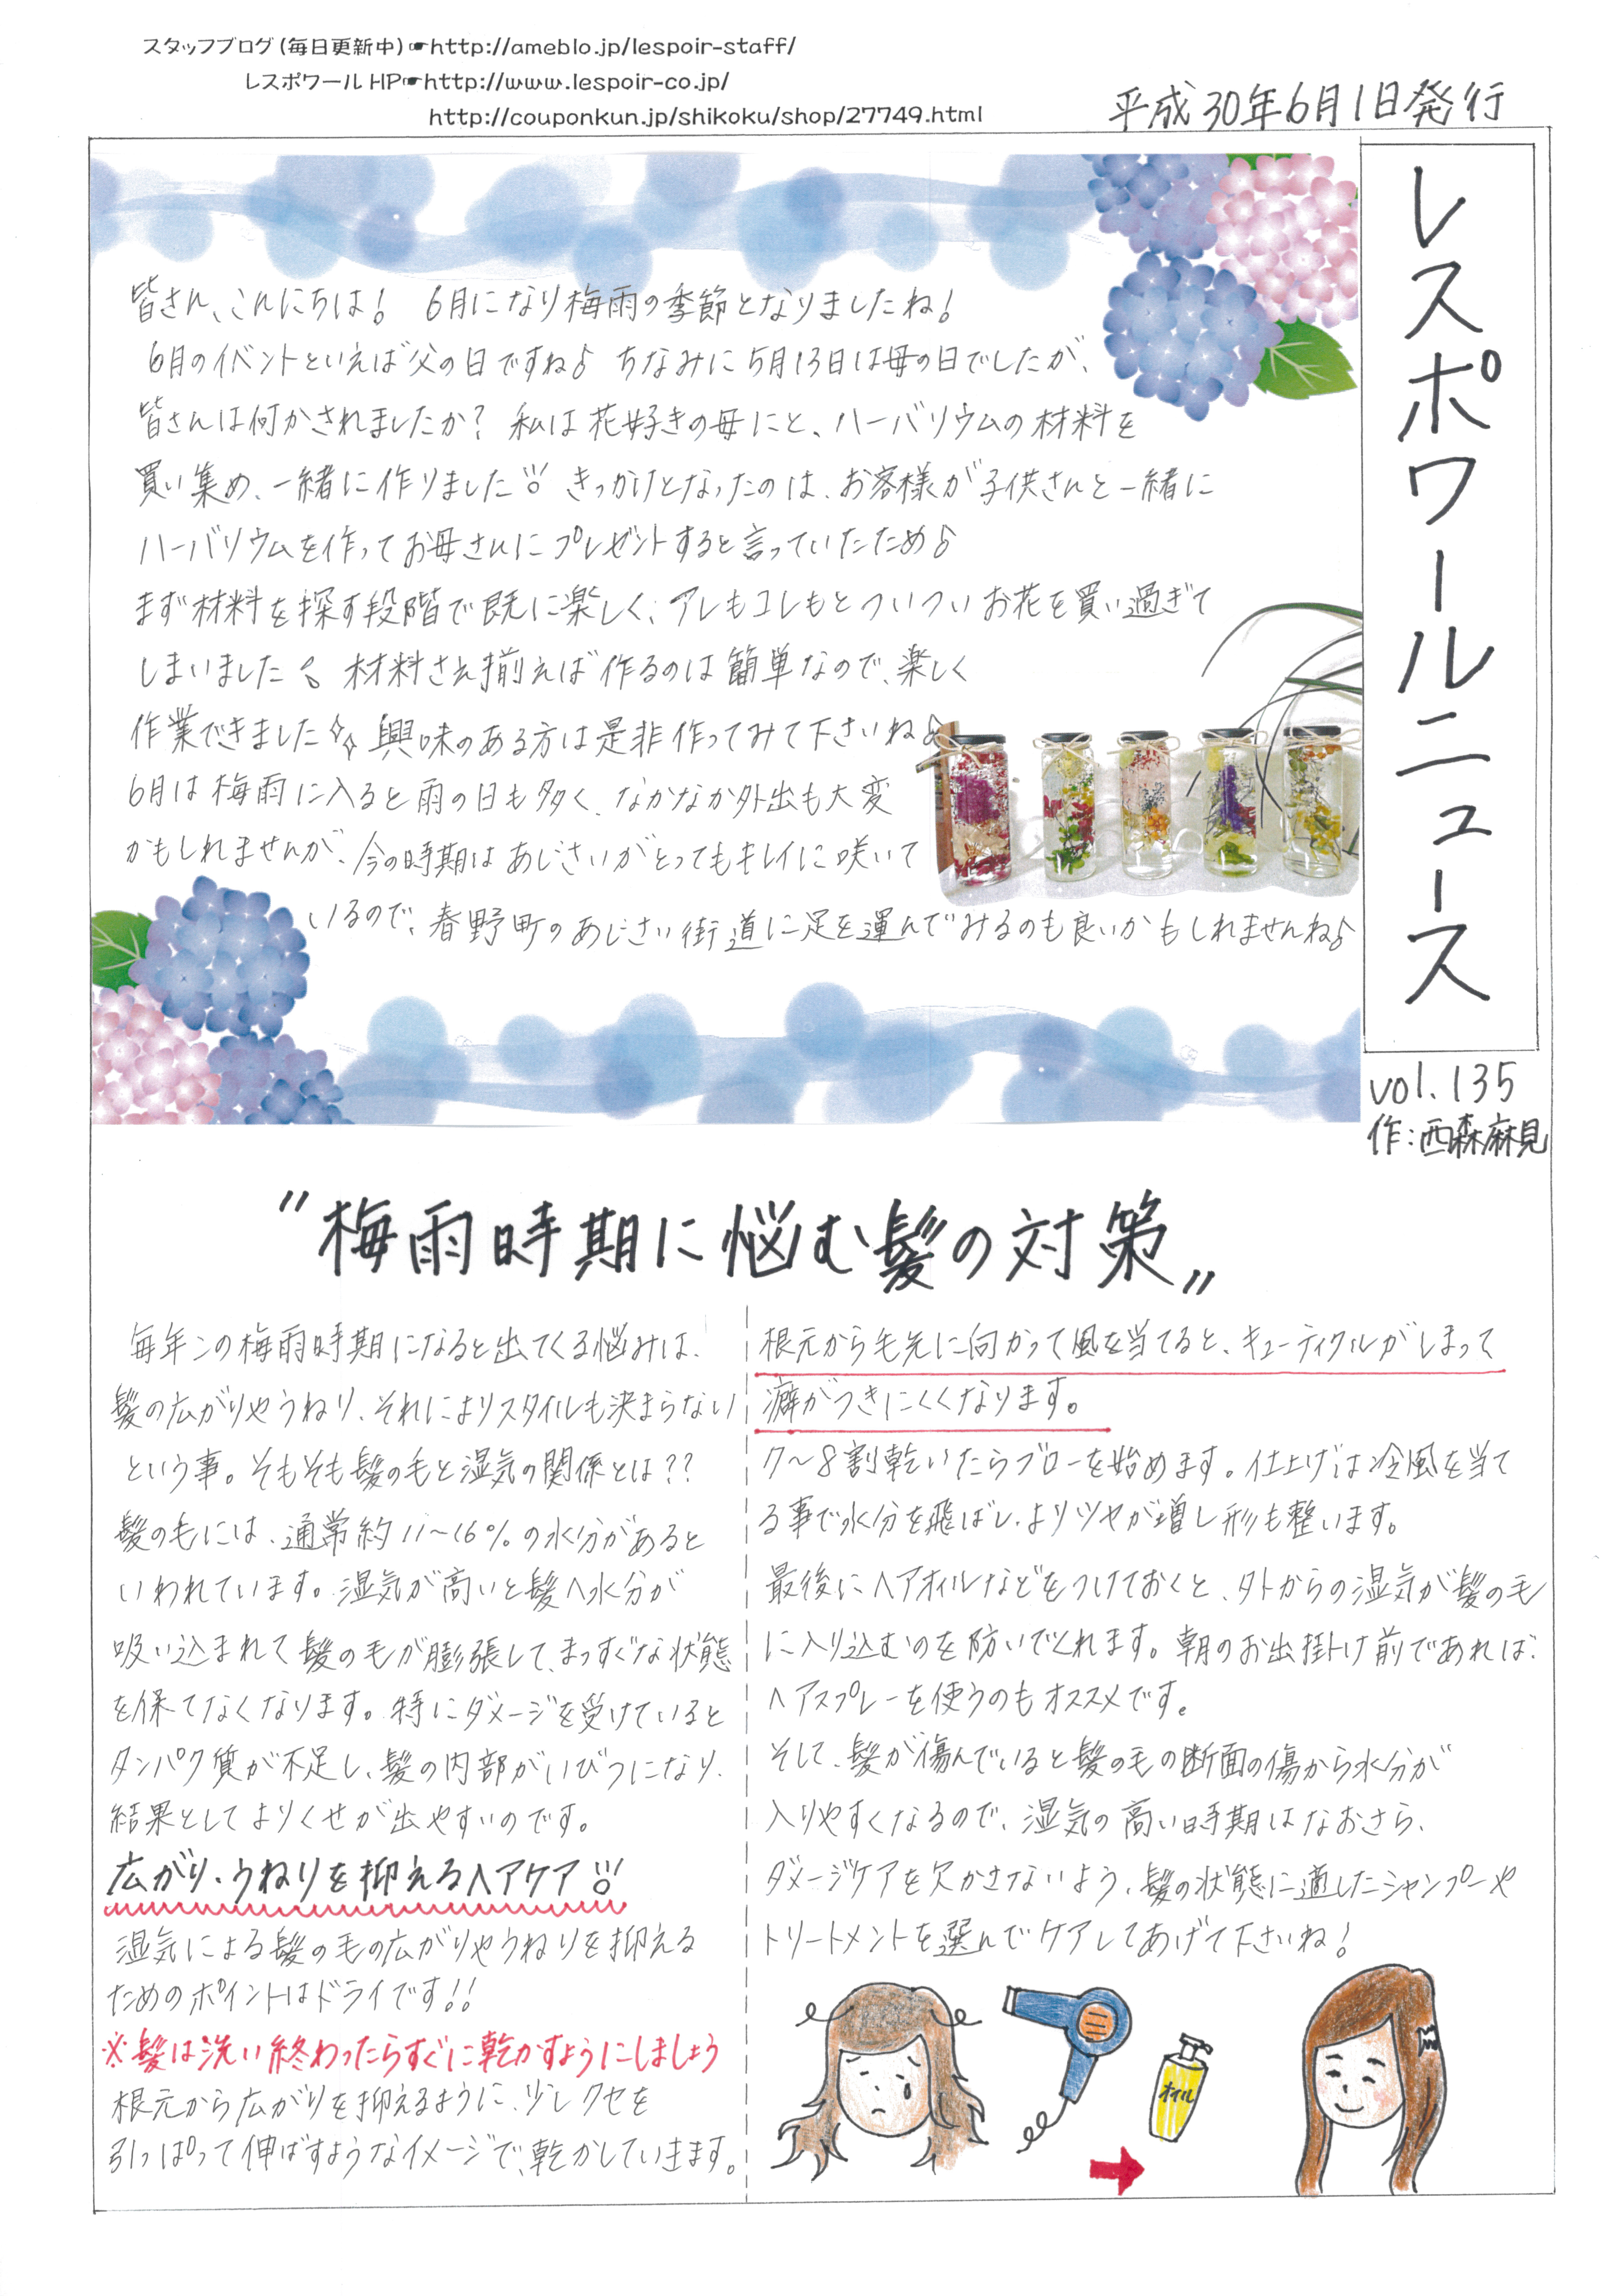 スタッフブログ(毎日更新中)☛http://ameblo.jp/lespoir-staff/
レスポワールHP☛http://www.lespoir-co.jp/
http://couponkun.jp/shikoku/shop/27749.html
平成30年6月1日発行
レスポワールニュース
vol.135
作:西森麻見
皆さん、こんにちは! 6月になり梅雨の季節となりましたね!
6月のイベントといえば父の日ですね♪ ちなみに5月13日は母の日でしたが、
皆さんは何かされましたか? 私は花好きの母にと、ハーバリウムの材料を
買い集め、一緒に作りました!! きっかけとなったのは、お客様が子供さんと一緒に
ハーバリウムを作ってお母さんにプレゼントすると言っていたため♪
まず材料を探す段階で既に楽しく、アレもコレもとついついお花を買い過ぎて
しまいました 材料さえ揃えば作るのは簡単なので、楽しく
作業できました 興味のある方は是非作ってみて下さいね♪
6月は梅雨に入ると雨の日も多く、なかなか外出も大変
かもしれませんが、今の時期はあじさいがとってもキレイに咲いて
いるので、春野町のあじさい街道に足を運んでみるのも良いかもしれませんね♪
"梅雨時期に悩む髪の対策"
毎年この梅雨時期になると出てくる悩みは、
髪の広がりやうねり、それによりスタイルも決まらない
という事。そもそも髪の毛と湿気の関係とは??
髪の毛には、通常約11~16%の水分があると
いわれています。湿気が高いと髪へ水分が
吸い込まれて髪の毛が膨張して、まっすぐな状態
を保てなくなります。特にダメージを受けていると
タンパク質が不足し、髪の内部がいびつになり、
結果としてよりくせが出やすいのです。
広がり、うねりを抑えるヘアケア!!
湿気による髪の毛の広がりやうねりを抑える
ためのポイントはドライです!!
※髪は洗い終わったらすぐに乾かすようにしましょう
根元から広がりを抑えるように、少しクセを
引っぱって伸ばすようなイメージで、乾かしていきます。
根元から毛先に向かって風を当てると、キューティクルがしまって
癖がつきにくくなります。
7~8割乾いたらブローを始めます。仕上げは冷風を当て
る事で水分を飛ばし、よりツヤが増し形も整います。
最後にヘアオイルなどをつけておくと、外からの湿気が髪の毛
に入り込むのを防いでくれます。朝のお出掛け前であれば、
ヘアスプレーを使うのもオススメです。
そして、髪が傷んでいると髪の毛の断面の傷から水分が
入りやすくなるので、湿気の高い時期はなおさら、
ダメージケアを欠かさないよう、髪の状態に適したシャンプーや
トリートメントを選んでケアしてあげて下さいね!
オイル